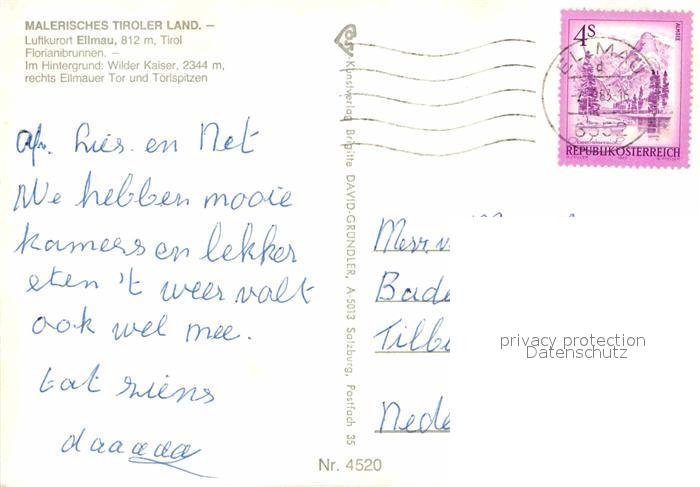 MALERISCHES TIROLER LAND. –
Luftkurort Ellmau, 812 m, Tirol
Florianibrunnen. –
Im Hintergrund: Wilder Kaiser, 2344 m,
rechts Ellmauer Tor und Törlspitzen
Lies en Net
We hebben mooie
kamers en lekker
eten 't weer valt
ook wel mee.
tot ziens
daaaaa
Kunstverlag Brigitte DAVID-GRÜNDLER, A-5013 Salzburg, Postfach 35
Nr. 4520
4 S
ALMSEE
REPUBLIK ÖSTERREICH
ELLMAU
6352
Bade
Tilb
Nede
privacy protection
Datenschutz